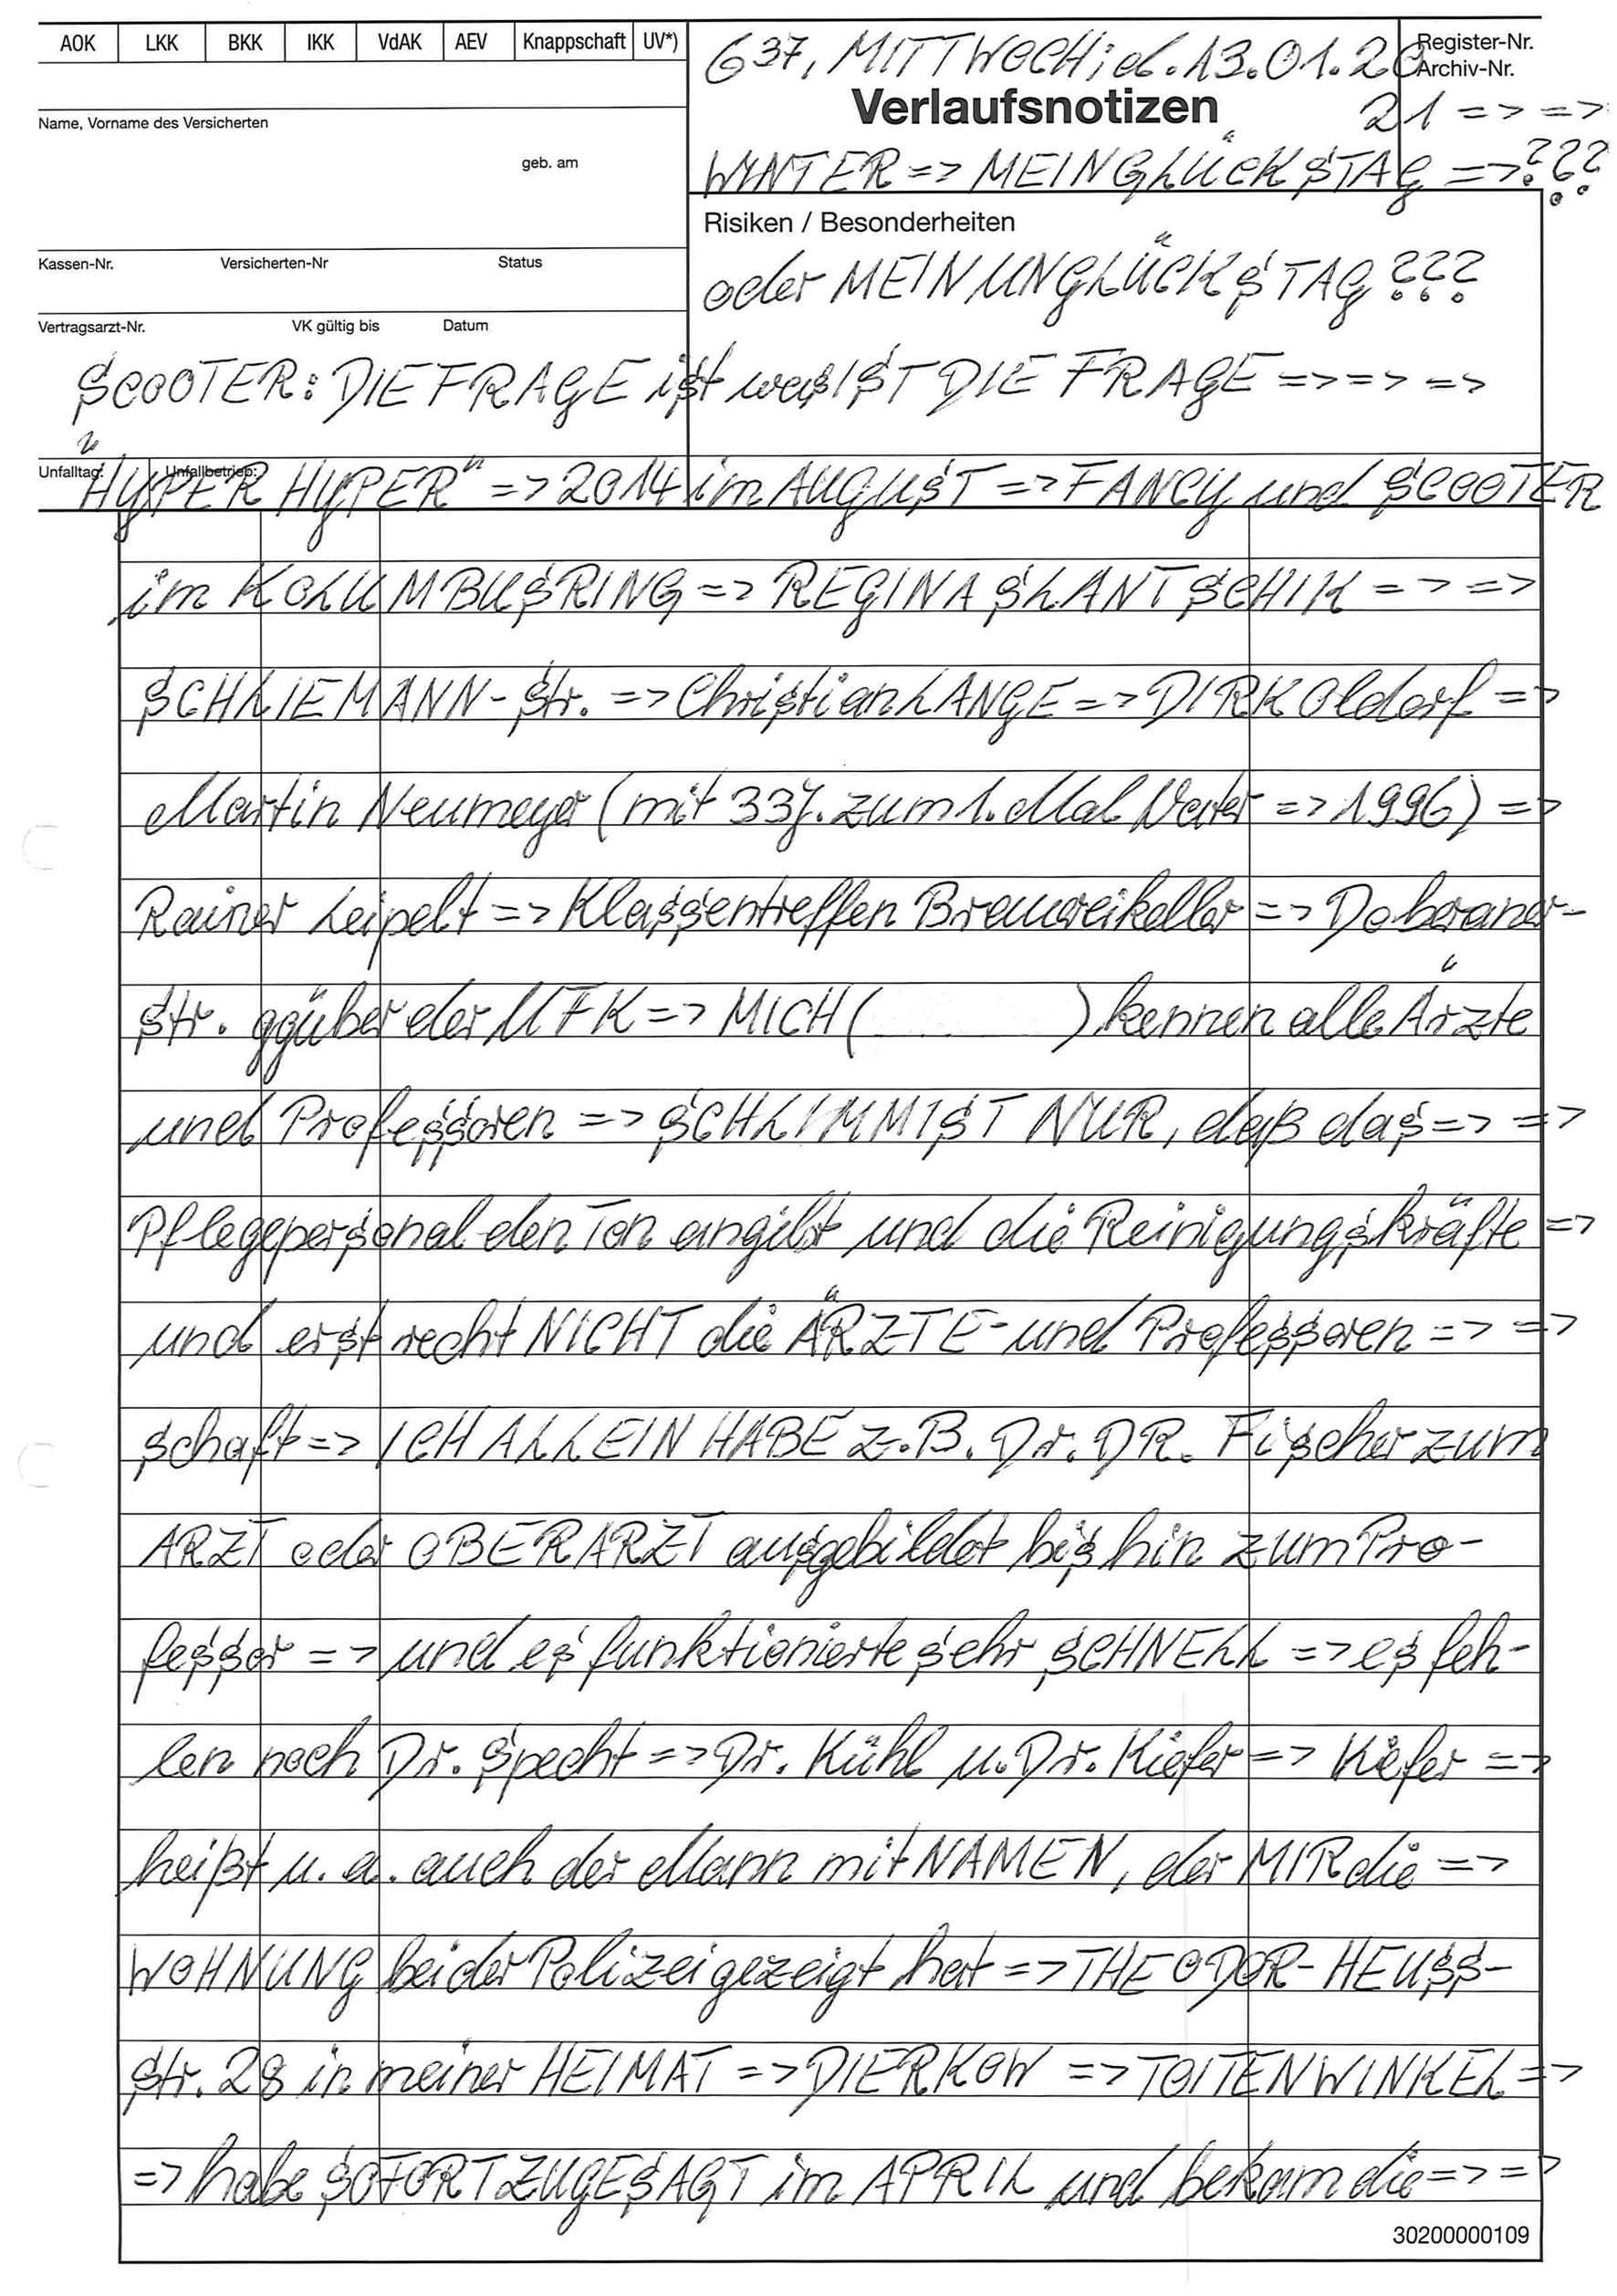 AOK LKK BKK IKK VdAK AEV Knappschaft UV*)
637, MITTWOCH; d. 13.01.20
Register-Nr.
Archiv-Nr.
Verlaufsnotizen
21 => =>
Name, Vorname des Versicherten
geb. am
WINTER => MEIN GLÜCKSTAG => ???
Risiken / Besonderheiten
Kassen-Nr. Versicherten-Nr Status
oder MEIN UNGLÜCKSTAG ???
Vertragsarzt-Nr. VK gültig bis Datum
SCOOTER: DIE FRAGE ist was IST DIE FRAGE => => =>
Unfalltag: Unfallbetrieb:
"HYPER HYPER" => 2014 im AUGUST => FANCY und SCOOTER
im KOLUMBUSRING => REGINA SLANTSCHIK => =>
SCHLIEMANN-Str. => Christian LANGE => DIRK Oldorf =>
Martin Neumeyer (mit 33J. zum 1. Mal Vater => 1996) =>
Rainer Leipelt => Klassentreffen Brauereikeller => Doberaner-
Str. ggüber der UFK => MICH ( ) kennen alle Ärzte
und Professoren => SCHLIMM IST NUR, daß das => =>
Pflegepersonal den Ton angibt und die Reinigungskräfte =>
und erst recht NICHT die ÄRZTE- und Professoren => =>
schaft => ICH ALLEIN HABE z.B. Dr. DR. Fischer zum
ARZT oder OBERARZT ausgebildet bis hin zum Pro-
fessor => und es funktionierte sehr SCHNELL => es feh-
len noch Dr. Specht => Dr. Kühl u. Dr. Kiefer => Kiefer =>
heißt u. a. auch der Mann mit NAMEN, der MIR die =>
WOHNUNG bei der Polizei gezeigt hat => THEODOR-HEUSS-
Str. 28 in meiner HEIMAT => DIERKOW => TOITENWINKEL =>
=> habe SOFORT ZUGESAGT im APRIL und bekam die => =>
30200000109